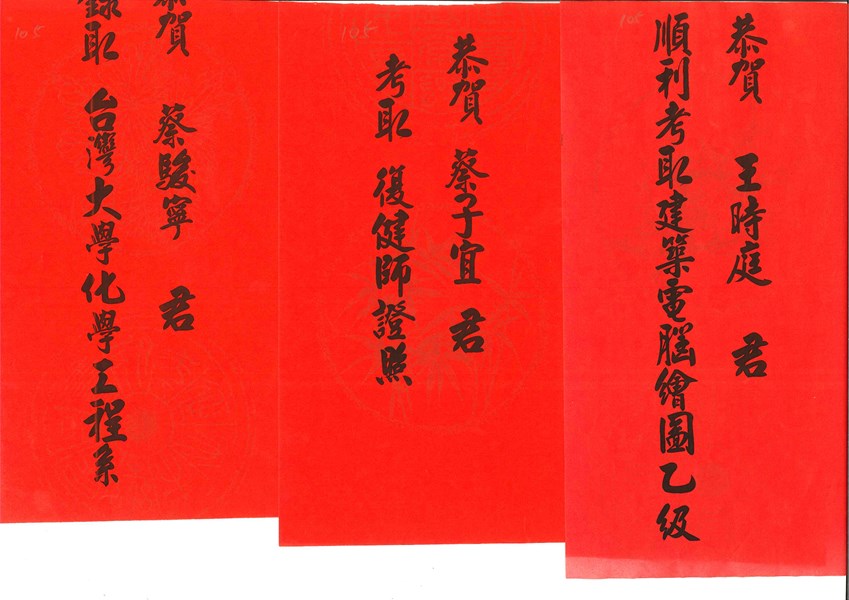 恭賀 王時庭 君
順利考取建築電腦繪圖乙級
105
恭賀 蔡子宜 君
考取 復健師證照
105
恭賀 蔡駿寧 君
錄取 台灣大學化學工程系
105